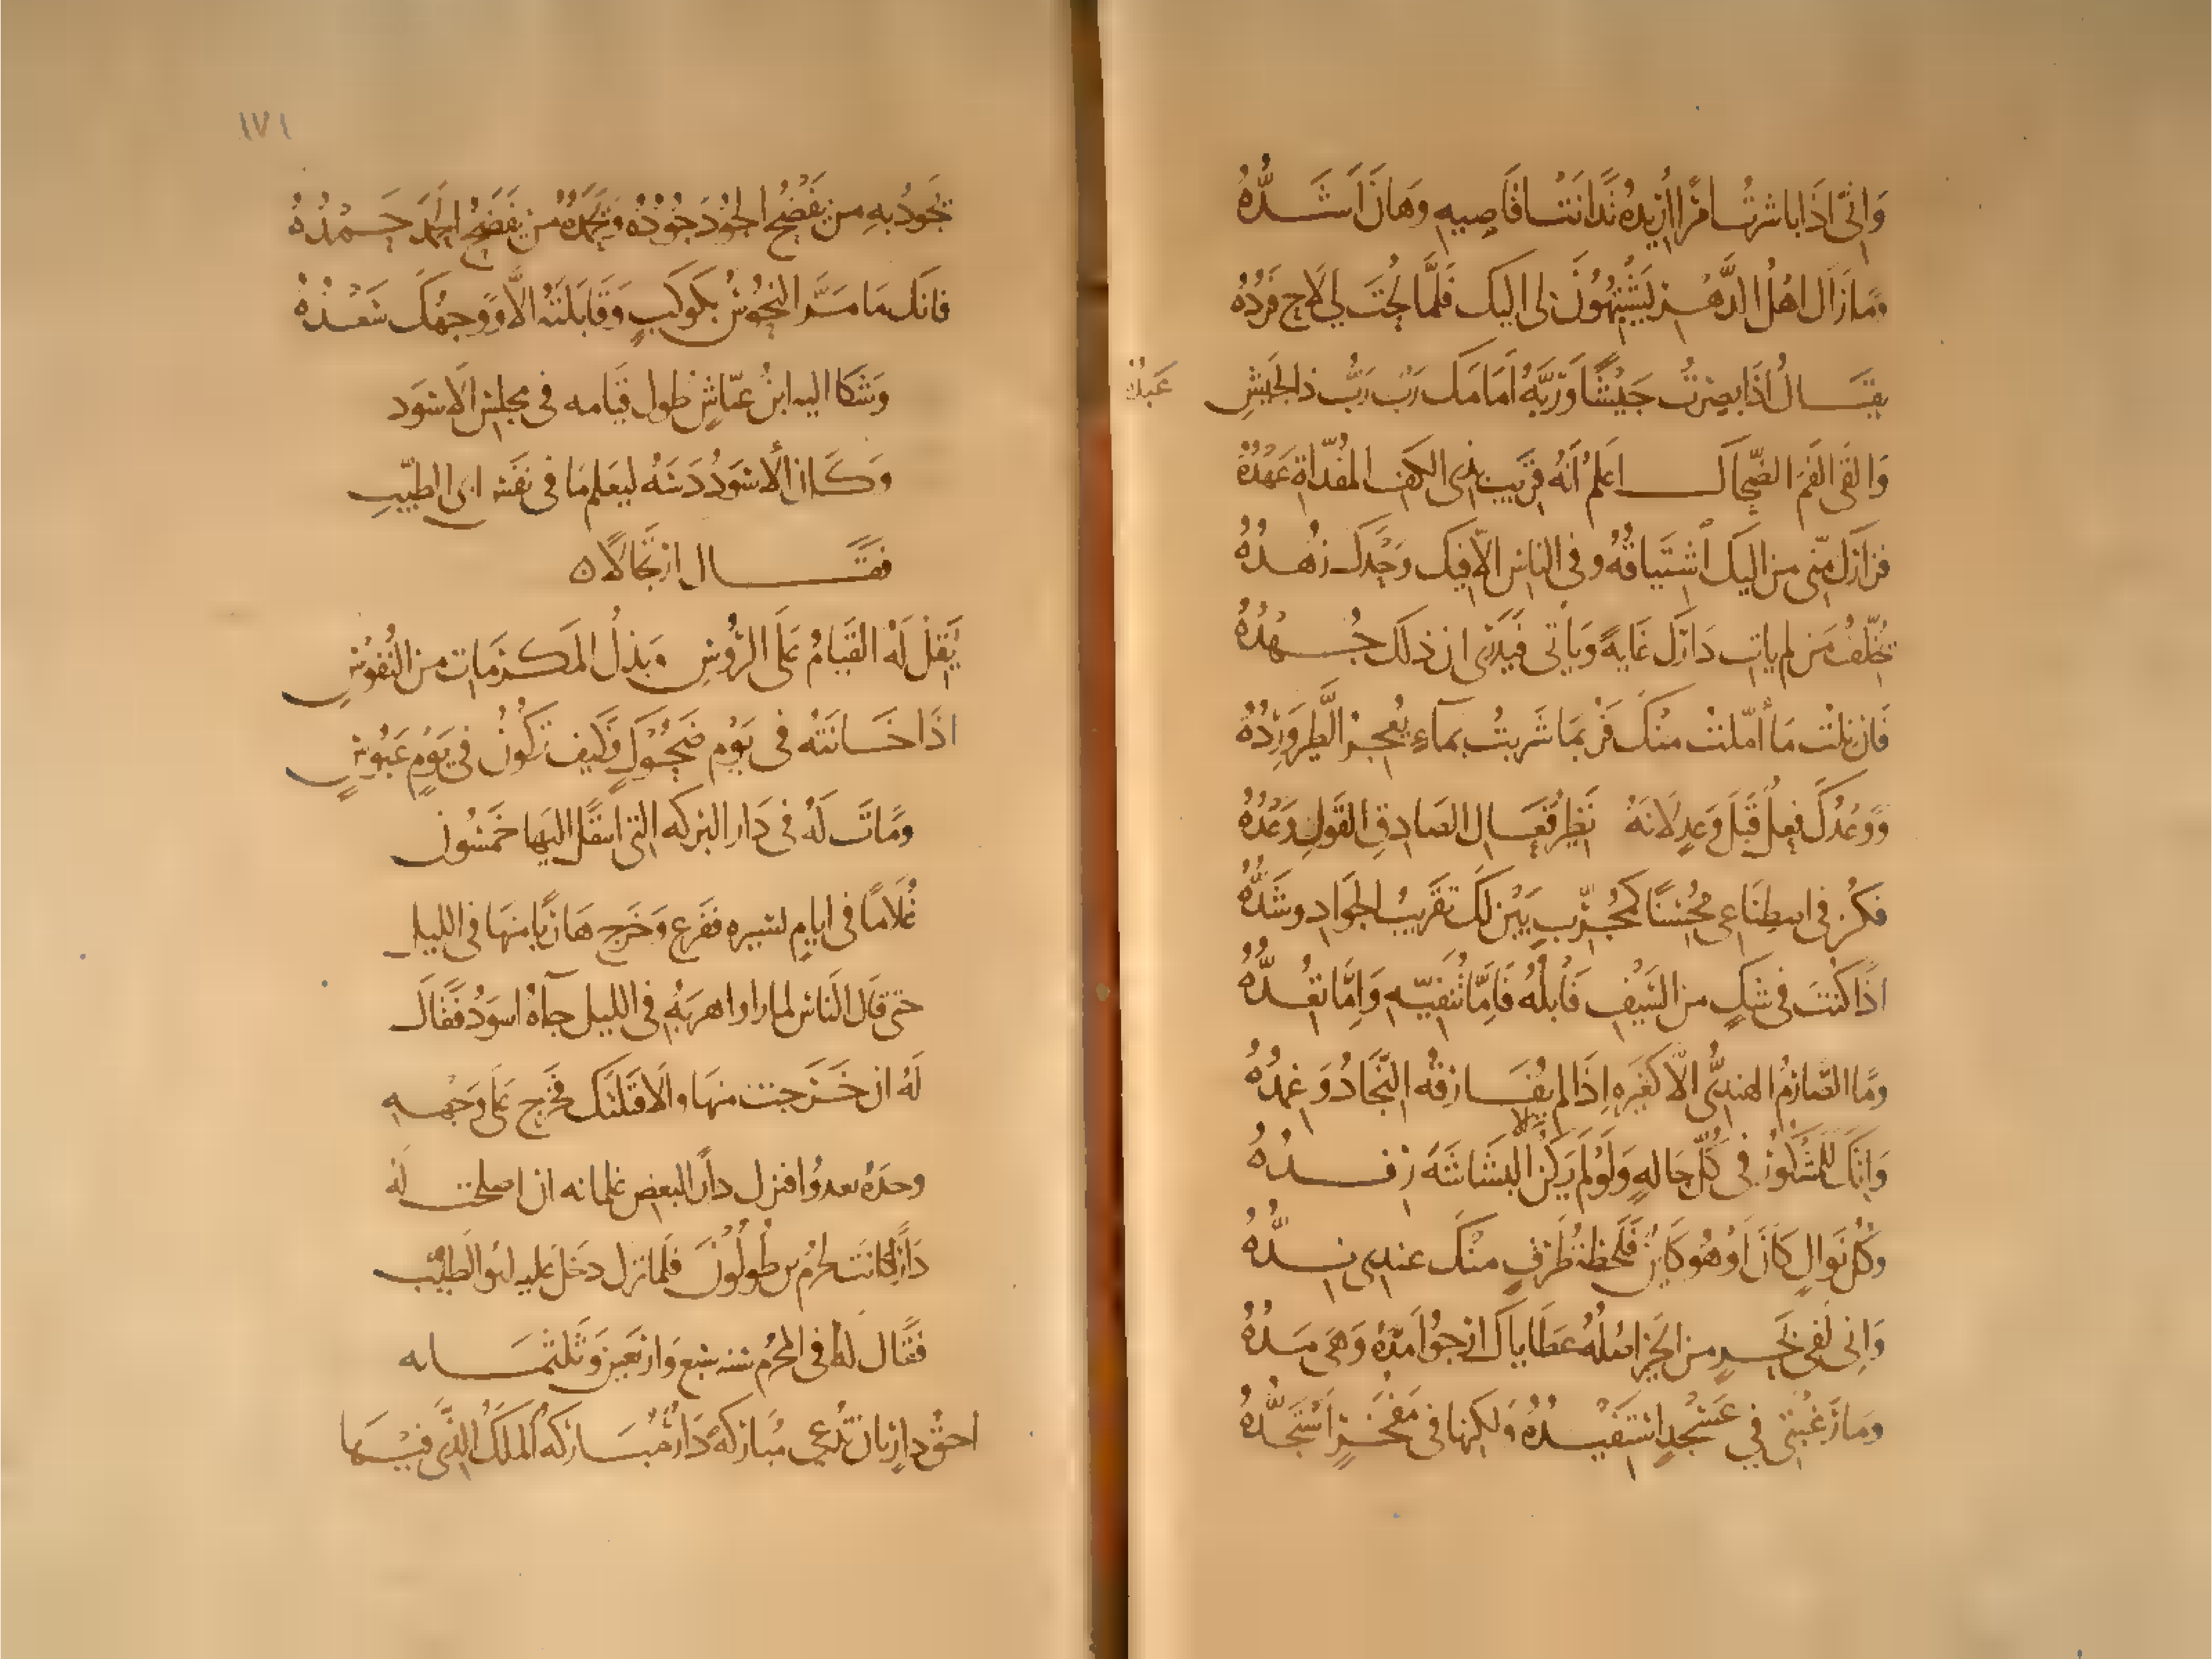 وَانِّى اذَا باشرتُ امرًا اُرِيدُهُ تَدَانَتْ اقَاصِيهِ وَهَانَ اَشَدُّهُ
ومَا زَالَ اهْلُ الدَّهْرِ يَشْتَبِهُونَ لى اليكَ فَلَمَّا لُحْتَ لِى لَاحَ فَرْدُهُ
يقَالُ اذَا ابصرتُ جَيْشًا وَرَبَّهُ اَمَامَكَ رَبٌّ رَبُّ ذا الجَيْشِ عَبْدُهُ
وَالقَى الفَمَ الضَّحَّاكَ اعلمُ اَنَّهُ قريبٌ بذى الكفِّ المُفَدَّاةِ عَهْدُهُ
فزَارَكَ مِنِّى من اليكَ اشتيَاقُهُ وفى الناسِ الّا فيكَ وَحْدَكَ زُهْدُهُ
يُخَلِّفُ مَن لم ياتِ دَارَكَ غَايةً وَيَاْتى فَيَدْرى ان ذلكَ جُهْدُهُ
فَان نِلتُ مَا اَمَّلتُ مِنْكَ فَرُبمَا شَرِبتُ بمَاءٍ يُعْجِزُ الطَّيرَ وِرْدُهُ
وَوَعْدُكَ فِعْلٌ قَبْلَ وَعْدٍ لانَهُ نَظِيرُ فَعَالِ الصَادِقِ القَولِ وَعْدُهُ
فَكُنْ فى اصطِنَاعِى مُحْسِنًا كَمُجَرِّبٍ يَبِنْ لكَ تَقْرِيبُ الجَوَادِ وَشَدُّهُ
اذَا كنْتَ فى شَكٍّ من السَّيْفِ فَابْلُهُ فَاِمَّا تُنَفِيّهِ وَاِمَّا تُعُدُّهُ
ومَا الصَّارِمُ الهِندىُّ الّا كغَيْرِهِ اِذَا لم يُفَارِقْهُ النِّجَادُ وَغِمْدُهُ
وَانَّكَ لَلْمَشْكُورُ فى كُلِّ حَالهٍ وَلَوْ لَمْ يَكُنْ الّا البَشَاشَةَ رِفْدُهُ
وَكُلُّ نَوَالٍ كَانَ اَوْ هُوَ كَايِنٌ فَلَحْظَةُ طَرْفٍ مِنْكَ عِندى نِدُّهُ
وَاِنِّى لَفِى بَحْرٍ من الخَيرِ اصْلُهُ عَطَايَاكَ ارْجُوا مَدَّهُ وَهى مَدُّهُ
وَمَا رَغْبَتِى فِى عَسْجَدٍ استَفيدُهُ وَلَكِنَّهَا فى مَفْخَرٍ اَسْتَجِدُّهُ
١٧١
يَجُودُ بِهِ مَن يَفْضَحُ الجُودَ جُودُهُ وَيَحْمَدُهُ مَن يَفْضَحُ الحَمْدَ حَمْدُهُ
فانكَ مَا مَرَّ النُّحُوسُ بكَوكَبٍ وَقَابَلتَهُ الَّا وَوَجهُكَ سَعْدُهُ
وَشَكَا اليه ابنُ عيَّاشٍ طُول قيَامه فى مجلسِ الاَسْود
وَكَانَ الأسْوَدُ دَسَّهُ ليَعلَم مَا فى نفسِ ابى الطيِّبِ
فقَال ارتجَالًا ٥
يَقِلُّ لَهُ القيَامُ عَلَى الرُّؤُوسِ وَبَذْلُ المَكرمَاتِ من النُّفُوسِ
اذَا خَانَتْهُ فى يَوْمٍ ضَحُوكٍ فَكَيفَ تَكُونُ فى يَوْمٍ عَبُوسٍ
ومَاتَ لَهُ فى دَار البركه التى انتقَل اليهَا خَمسُون
غُلَامًا فى ايامٍ يسيره ففَزِع وَخَرج هَاربًا منهَا فى الليل
حتى قَالَ النَاسُ لما راوا هربَهُ فى الليل جآءهُ اسوَدُ فقَالَ
لَهُ ان خَرَجتَ منهَا والَا قتلتَكَ فخَرج عَلَى وَجْهِهِ
وحدَهُ يعدُوا فنزل دارًا لبعض غلمانه الى ان اصلحت لَه
دَارٌ كانَت لحرَم بن طُولُونَ فَلمَا نزل دخَل عَليهِ ابُو الطيِّب
فقَال لهُ فى المحرّم سنه سبع وَاربَعينَ وَثَلثمَايه
احقُّ دارٍ بان تُدعى مُبَاركهً دَارٌ مُبَاركَه المَلكُ الّذى فِيهَا